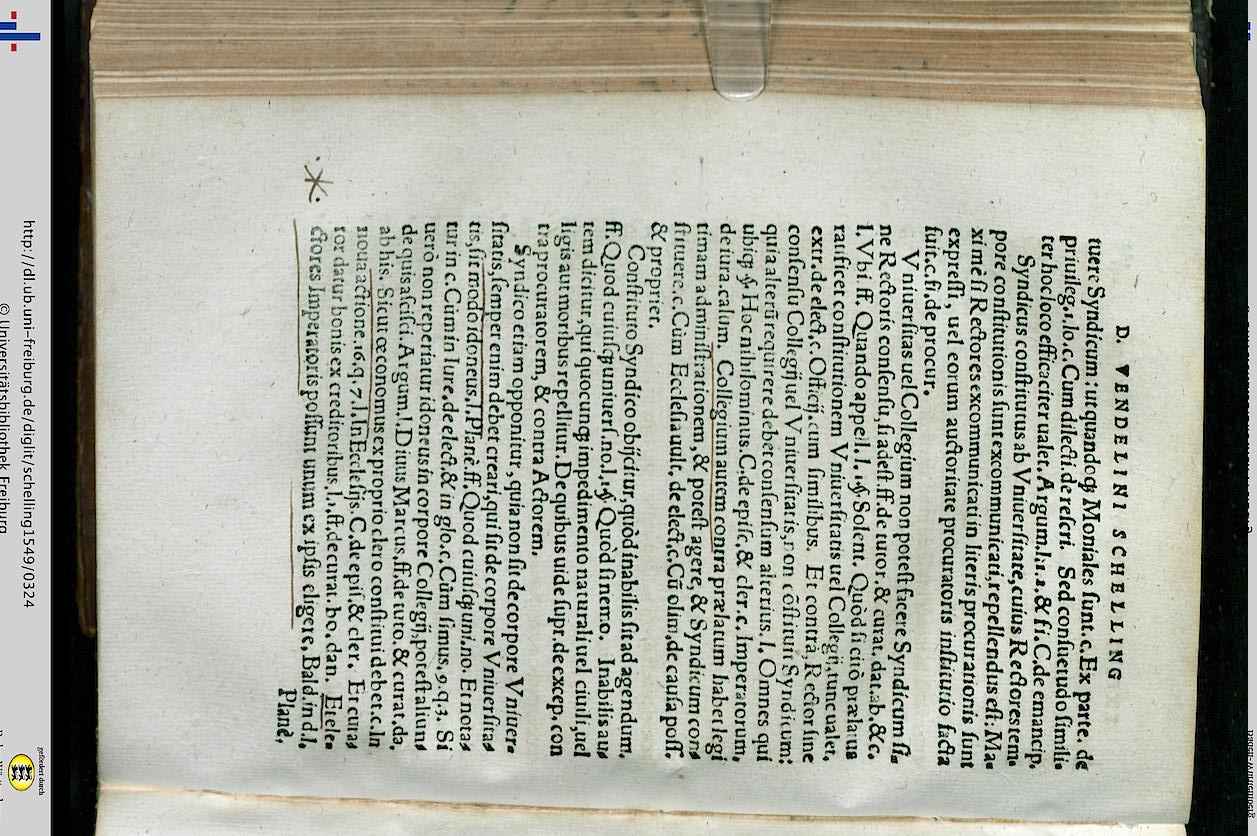 D. VENDELINI SCHELLING
tuere Syndicum: ut quandoq; Moniales sunt. c. Ex parte. de
priuileg. 1. lo. c. Cum dilecti. de rescri. Sed consuetudo simili-
ter hoc loco efficaciter ualet. Argum. l. 1. 2. & fi. C. de emancip.
Syndicus constitutus ab Vniuersitate, cuius Rectores tem-
pore constitutionis sunt excommunicati, repellendus est: Ma-
ximè si Rectores excommunicati in literis procurationis sunt
expressi, uel eorum auctoritate procuratoris institutio facta
fuit. c. fi. de procur.
Vniuersitas uel Collegium non potest facere Syndicum si-
ne Rectoris consensu, si adest. ff. de tutor. & curat. dat. ab. &c.
l. Vbi. ff. Quando appell. l. 1. §. Solent. Quòd si citò prælatus
ratificet constitutionem Vniuersitatis uel Collegij, tunc ualet.
extr. de elect. c. Officij. cum similibus. Et contrà, Rector sine
consensu Collegij uel Vniuersitatis, non cõstituit Syndicum:
quia alter alterũ requirere debet consensum alterius. l. Omnes qui
ubiq; §. Hoc nihilominus. C. de episc. & cler. c. Imperatorum.
de iura. calum. Collegium autem contra prælatum habet legi
timam administrationem, & potest agere, & Syndicum con-
stituere. c. Cùm Ecclesia uult. de elect. c. Cũ olim, de causa poss.
& propriet.
Constituto Syndico obijcitur, quòd inabilis sit ad agendum.
ff. Quod cuiusq; uniuers. no. l. 1. §. Quòd si nemo. Inabilis au-
tem dicitur, qui quocunq; impedimento naturali uel ciuili, uel
ligis aut moribus repellitur. De quibus uide supr. de excep. con
tra procuratorem, & contra Actorem.
Syndico etiam opponitur, quia non sit de corpore Vniuer-
sitatis, semper enim debet creari, qui sit de corpore Vniuersita-
tis, sit modo idoneus. l. Planè. ff. Quod cuiusq; uni. no. Et nota-
tur in c. Cùm in Iure. de elect. & in glo. c. Cùm simus, 9. q. 3. Si
uerò non reperiatur idoneus in corpore Collegij, potest aliun-
de quis asisci. Argum. l. Diuus Marcus. ff. de tuto. & curat. da.
ab his. Sicut œconomus ex proprio clero constitui debet. c. In
noua actione. 16. q. 7. l. In Ecclesijs. C. de epis. & cler. Et cura-
tor datur bonis ex creditoribus. l. 2. ff. de curat. bo. dan. Et ele-
ctores Imperatoris possunt unum ex ipsis eligere, Bald. in d. l.
Planè.
http://dl.ub.uni-freiburg.de/diglit/schelling1549/0324
© Universitätsbibliothek Freiburg
gefördert durch